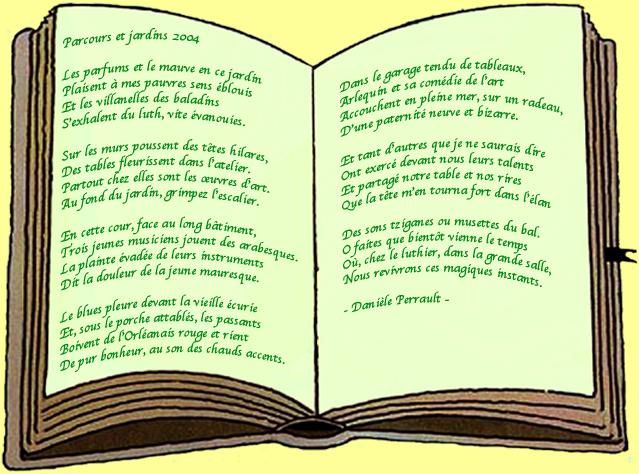 Parcours et jardins 2004
Les parfums et le mauve en ce jardin
Plaisent à mes pauvres sens éblouis
Et les villanelles des baladins
S'exhalent du luth, vite évanouies.
Sur les murs poussent des têtes hilares,
Des tables fleurissent dans l'atelier.
Partout chez elles sont les œuvres d'art.
Au fond du jardin, grimpez l'escalier.
En cette cour, face au long bâtiment,
Trois jeunes musiciens jouent des arabesques.
La plainte évadée de leurs instruments
Dit la douleur de la jeune mauresque.
Le blues pleure devant la vieille écurie
Et, sous le porche attablés, les passants
Boivent de l'Orléanais rouge et rient
De pur bonheur, au son des chauds accents.
Dans le garage tendu de tableaux,
Arlequin et sa comédie de l'art
Accouchent en pleine mer, sur un radeau,
D'une paternité neuve et bizarre.
Et tant d'autres que je ne saurais dire
Ont exercé devant nous leurs talents
Et partagé notre table et nos rires
Que la tête m'en tourna fort dans l'élan
Des sons tziganes ou musettes du bal.
O faites que bientôt vienne le temps
Où, chez le luthier, dans la grande salle,
Nous revivrons ces magiques instants.
- Danièle Perrault -